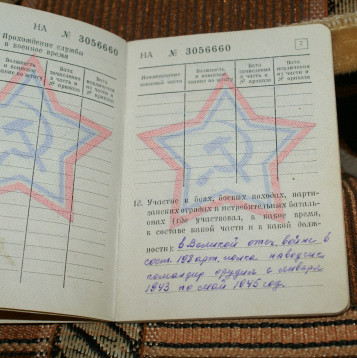 НА № 3056660
Прохождение службы
в военное время
Должность
и военное
звание по штату
Дата
зачисления
в часть и
№ приказа
Дата
исключения
из части и
№ приказа
НА № 3056660
2
Наименование
воинской части
Должность
и военное
звание по штату
Дата
зачисления
в часть и
№ приказа
Дата
исключения
из части и
№ приказа
Участие в боях, боевых походах, парти-
занских отрядах и истребительных баталь-
онах (где участвовал, в какое время,
в составе какой части и в какой долж-
ности): в Великой отеч. войне в
сост. 198 арт. полка наводчик
командир орудия с января
1943 по май 1945 год.